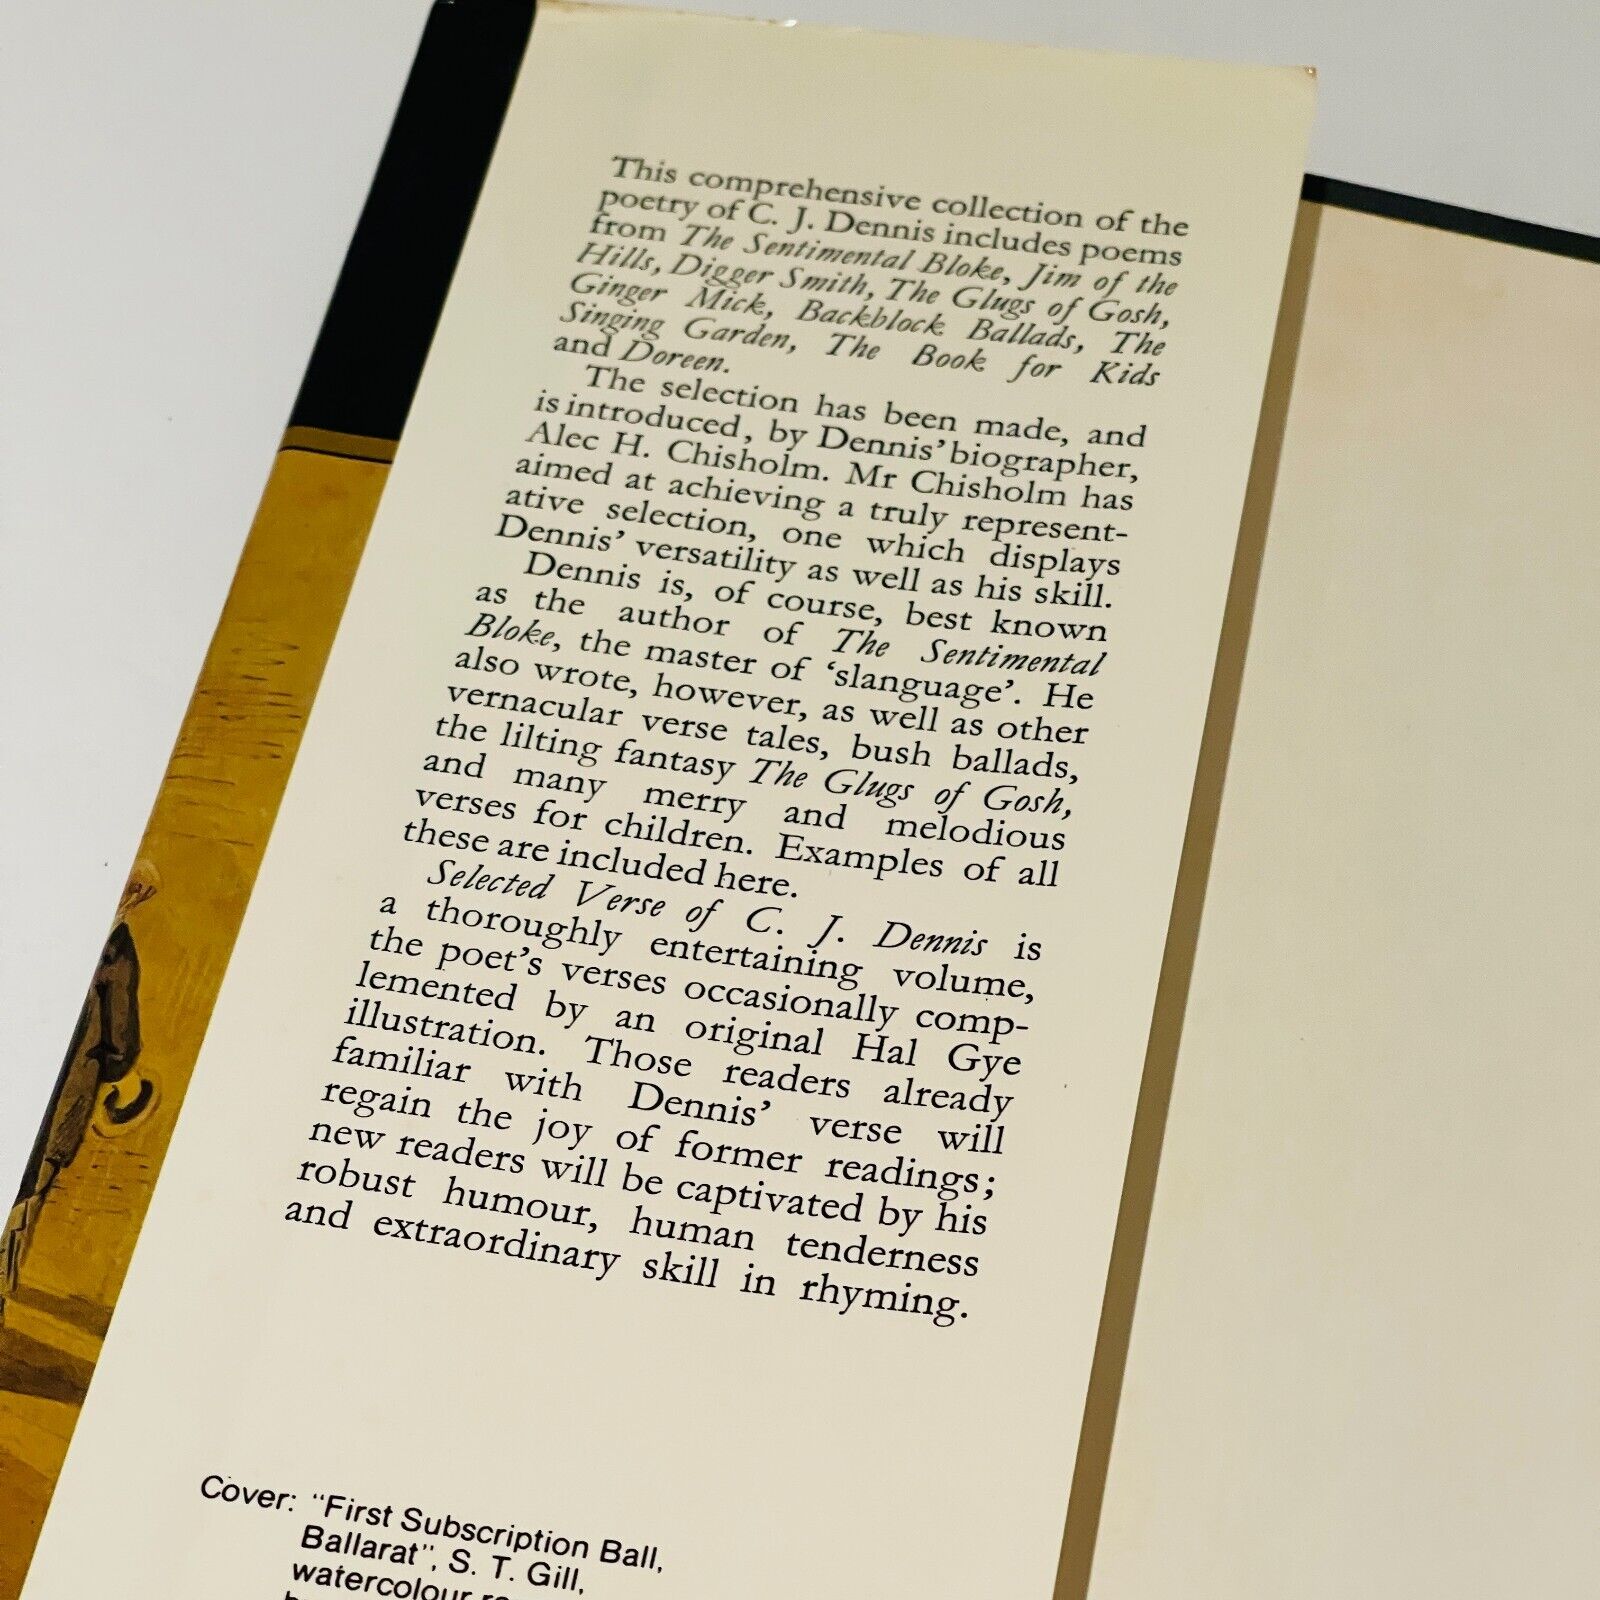 This comprehensive collection of the
poetry of C. J. Dennis includes poems
from The Sentimental Bloke, Jim of the
Hills, Digger Smith, The Glugs of Gosh,
Ginger Mick, Backblock Ballads, The
Singing Garden, The Book for Kids
and Doreen.
The selection has been made, and
is introduced, by Dennis' biographer,
Alec H. Chisholm. Mr Chisholm has
aimed at achieving a truly represent-
ative selection, one which displays
Dennis' versatility as well as his skill.
Dennis is, of course, best known
as the author of The Sentimental
Bloke, the master of ‘slanguage’. He
also wrote, however, as well as other
vernacular verse tales, bush ballads,
the lilting fantasy The Glugs of Gosh,
and many merry and melodious
verses for children. Examples of all
these are included here.
Selected Verse of C. J. Dennis is
a thoroughly entertaining volume,
the poet’s verses occasionally comp-
lemented by an original Hal Gye
illustration. Those readers already
familiar with Dennis’ verse will
regain the joy of former readings;
new readers will be captivated by his
robust humour, human tenderness
and extraordinary skill in rhyming.
Cover: "First Subscription Ball,
Ballarat", S. T. Gill,
watercolour